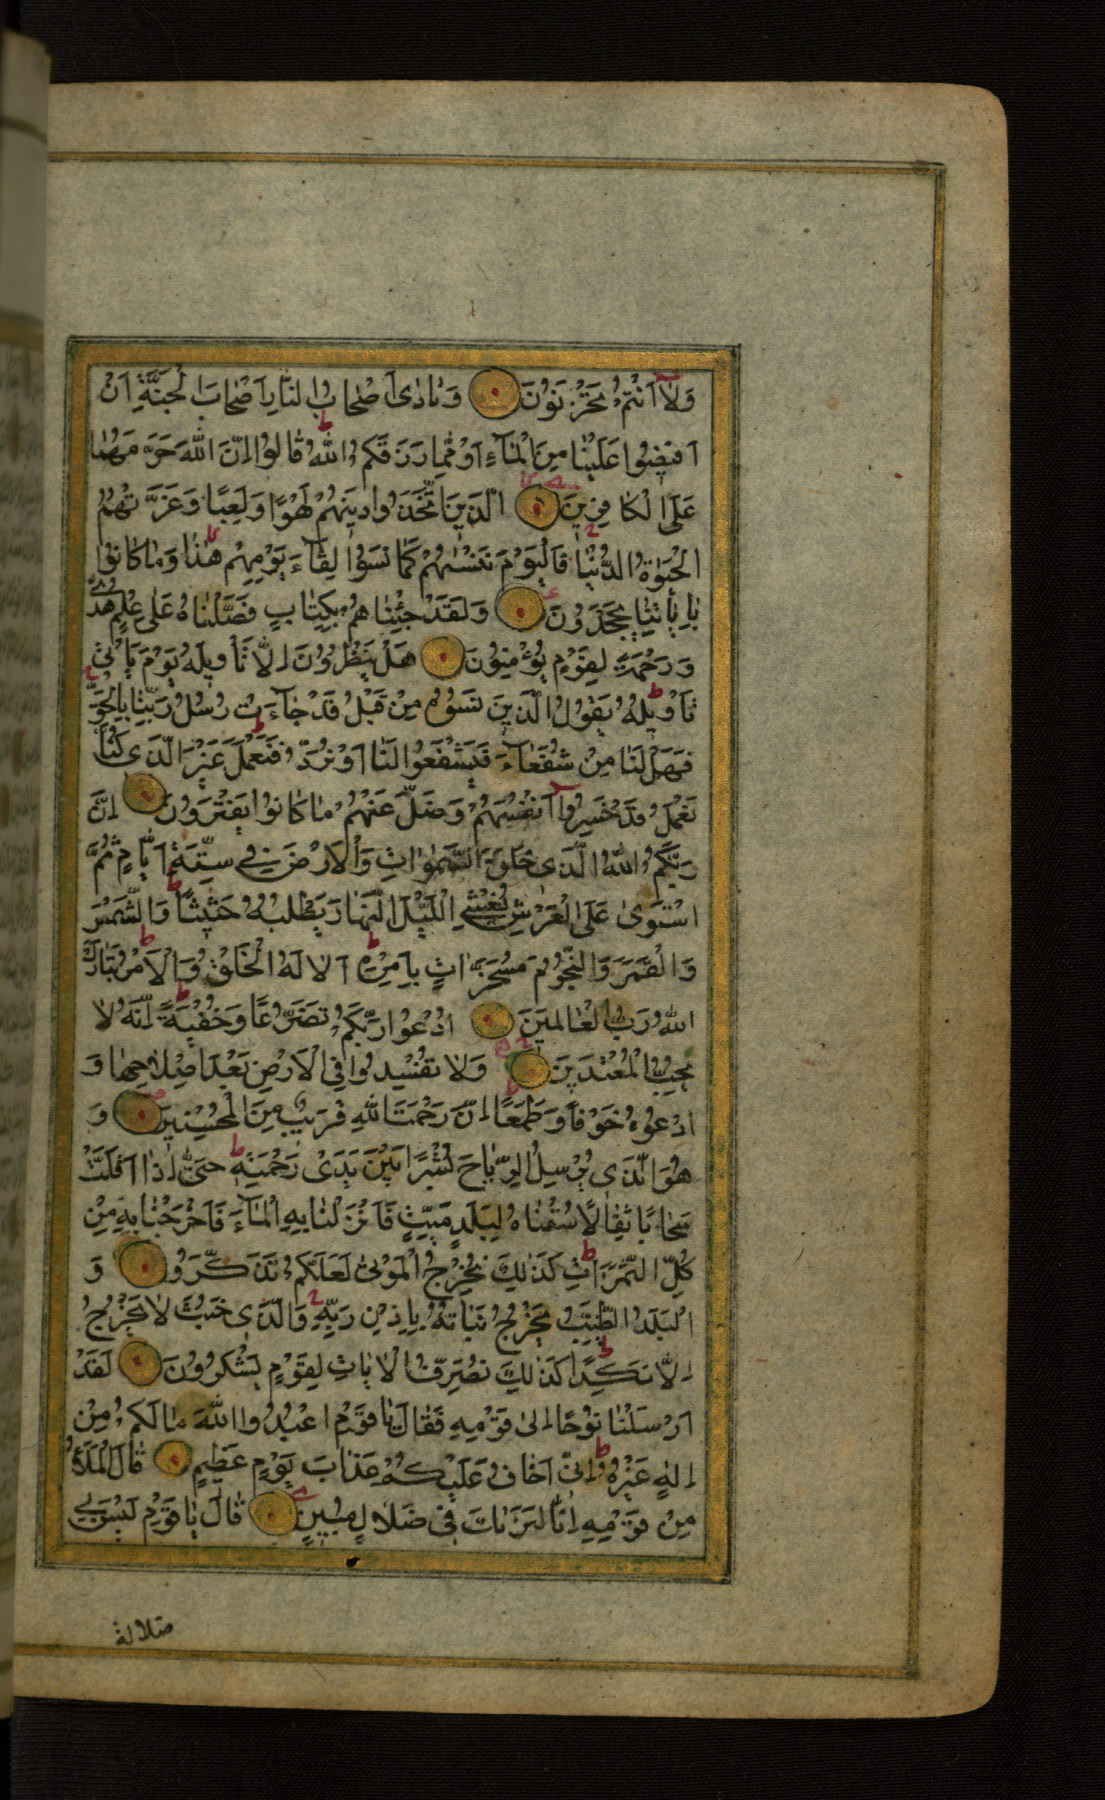 وَلَا أَنْتُمْ تَحْزَنُونَ وَنَادَى أَصْحَابُ النَّارِ أَصْحَابَ الْجَنَّةِ أَنْ
أَفِيضُوا عَلَيْنَا مِنَ الْمَاءِ أَوْ مِمَّا رَزَقَكُمُ اللّٰهُ قَالُوا إِنَّ اللّٰهَ حَرَّمَهُمَا
عَلَى الْكَافِرِينَ الَّذِينَ اتَّخَذُوا دِينَهُمْ لَهْوًا وَلَعِبًا وَغَرَّتْهُمُ
الْحَيٰوةُ الدُّنْيَا فَالْيَوْمَ نَنْسٰهُمْ كَمَا نَسُوا لِقَاءَ يَوْمِهِمْ هٰذَا وَمَا كَانُوا
بِاٰيَاتِنَا يَجْحَدُونَ وَلَقَدْ جِئْنَاهُمْ بِكِتَابٍ فَصَّلْنَاهُ عَلَى عِلْمٍ هُدًى
وَرَحْمَةً لِقَوْمٍ يُؤْمِنُونَ هَلْ يَنْظُرُونَ إِلَّا تَأْوِيلَهُ يَوْمَ يَأْتِي
تَأْوِيلُهُ يَقُولُ الَّذِينَ نَسُوهُ مِنْ قَبْلُ قَدْ جَاءَتْ رُسُلُ رَبِّنَا بِالْحَقِّ
فَهَلْ لَنَا مِنْ شُفَعَاءَ فَيَشْفَعُوا لَنَا أَوْ نُرَدُّ فَنَعْمَلَ غَيْرَ الَّذِي كُنَّا
نَعْمَلُ قَدْ خَسِرُوا أَنْفُسَهُمْ وَضَلَّ عَنْهُمْ مَا كَانُوا يَفْتَرُونَ إِنَّ
رَبَّكُمُ اللّٰهُ الَّذِي خَلَقَ السَّمٰوَاتِ وَالْأَرْضَ فِي سِتَّةِ أَيَّامٍ ثُمَّ
اسْتَوَى عَلَى الْعَرْشِ يُغْشِي اللَّيْلَ النَّهَارَ يَطْلُبُهُ حَثِيثًا وَالشَّمْسَ
وَالْقَمَرَ وَالنُّجُومَ مُسَخَّرَاتٍ بِأَمْرِهِ أَلَا لَهُ الْخَلْقُ وَالْأَمْرُ تَبَارَكَ
اللّٰهُ رَبُّ الْعَالَمِينَ ادْعُوا رَبَّكُمْ تَضَرُّعًا وَخُفْيَةً إِنَّهُ لَا
يُحِبُّ الْمُعْتَدِينَ وَلَا تُفْسِدُوا فِي الْأَرْضِ بَعْدَ إِصْلَاحِهَا وَ
ادْعُوهُ خَوْفًا وَطَمَعًا إِنَّ رَحْمَتَ اللّٰهِ قَرِيبٌ مِنَ الْمُحْسِنِينَ وَ
هُوَ الَّذِي يُرْسِلُ الرِّيَاحَ بُشْرًا بَيْنَ يَدَيْ رَحْمَتِهِ حَتَّى إِذَا أَقَلَّتْ
سَحَابًا ثِقَالًا سُقْنَاهُ لِبَلَدٍ مَيِّتٍ فَأَنْزَلْنَا بِهِ الْمَاءَ فَأَخْرَجْنَا بِهِ مِنْ
كُلِّ الثَّمَرَاتِ كَذٰلِكَ نُخْرِجُ الْمَوْتَى لَعَلَّكُمْ تَذَكَّرُونَ وَ
الْبَلَدُ الطَّيِّبُ يَخْرُجُ نَبَاتُهُ بِإِذْنِ رَبِّهِ وَالَّذِي خَبُثَ لَا يَخْرُجُ
إِلَّا نَكِدًا كَذٰلِكَ نُصَرِّفُ الْاٰيَاتِ لِقَوْمٍ يَشْكُرُونَ لَقَدْ
أَرْسَلْنَا نُوحًا إِلَى قَوْمِهِ فَقَالَ يَا قَوْمِ اعْبُدُوا اللّٰهَ مَا لَكُمْ مِنْ
إِلٰهٍ غَيْرُهُ إِنِّي أَخَافُ عَلَيْكُمْ عَذَابَ يَوْمٍ عَظِيمٍ قَالَ الْمَلَأُ
مِنْ قَوْمِهِ إِنَّا لَنَرَاكَ فِي ضَلَالٍ مُبِينٍ قَالَ يَا قَوْمِ لَيْسَ بِي
ضلالة